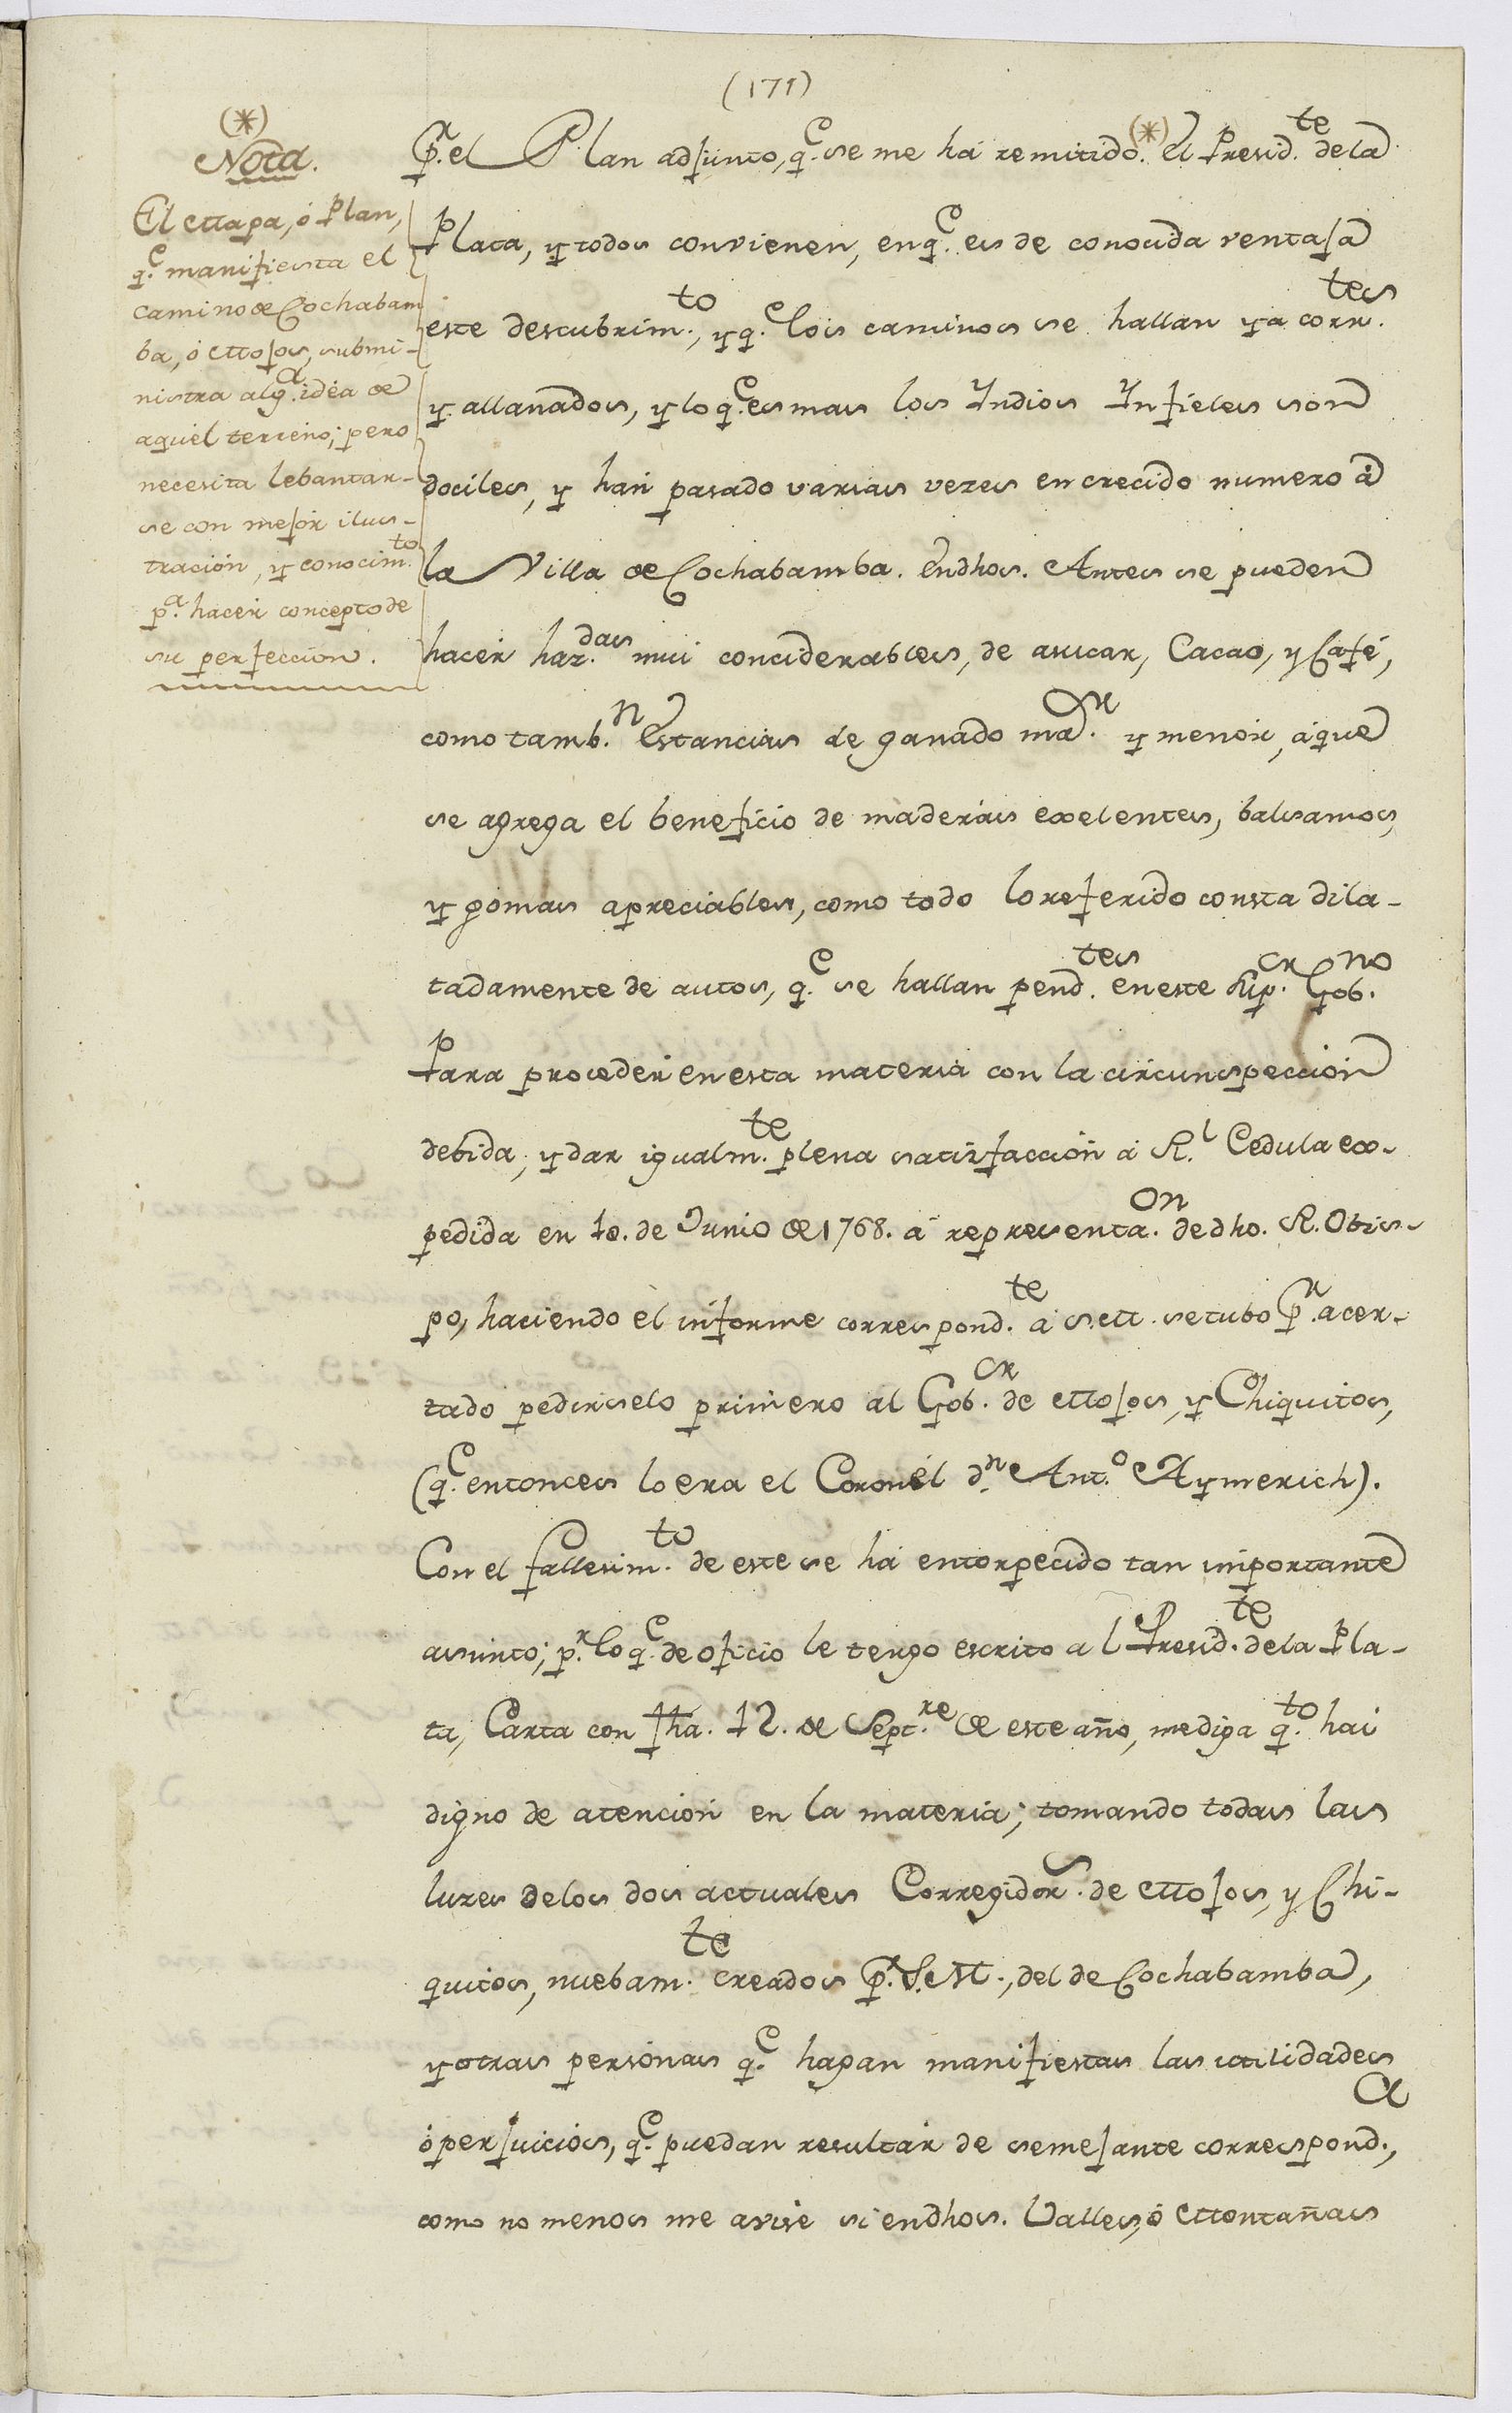 (171)
(*)
Nota.
El Mapa, ó Plan,
q.e manifiesta el
camino de Cochabam
ba, ó Mojos, submi-
nistra alg.a idéa de
aquel terreno; pero
necesita lebantar-
se con mejor ilus-
tración, y conocim.to
p.a hacer concepto de
su perfeccion.
p.r el Plan adjunto, q.e se me há remitido.(*) El Presid.te de la
Plata, y todos convienen, en q.e es de conocida ventaja
este descubrim.to, y q.e los caminos se hallan ya corr.tes
y allanados, y lo q.e es mas los Yndios Ynfieles son
dociles, y han pasado varias vezes en crecido numero á
la Villa de Cochabamba. En dhos. Antes se pueden
hacer haz.das mui conciderables, de asucar, Cacao, y Café,
como tamb.n Estancias de ganado ma.or y menor, á que
se agrega el beneficio de maderas exelentes, balsamos,
y gomas apreciables, como todo lo referido consta dila-
tadamente de autos, q.e se hallan pend.tes en este Sup.or Gob.no
Para proceder en esta materia con la circunspeccion
debida, y dar igualm.te plena satisfaccion á R.l Cedula ex-
pedida en 10. de Junio de 1768. á representa.on de dho. R. Obis-
po, haciendo el informe correspond.te á S.M. se tubo p.r acer-
tado pedirselo primero al Gob.or de Mojos, y Chiquitos,
(q.e entonces lo era el Coronél d.n Ant.o Aymerich).
Con el fallesim.to de este se há entorpecido tan importante
asunto; p.r lo q.e de oficio le tengo escrito al Presid.te de la Pla-
ta, Carta con fha. 12. de Sept.re de este año, me diga q.to hai
digno de atencion en la materia; tomando todas las
luzes de los dos actuales Corregidor.s de Mojos, y Chi-
quitos, nuebam.te creados p.r S.M., del de Cochabamba,
y otras personas q.e hagan manifiestas las utilidades
ó perjuicios, q.e puedan resultar de semejante correspond.a,
como no menos me avise si en dhos. Valles, ó Montañas